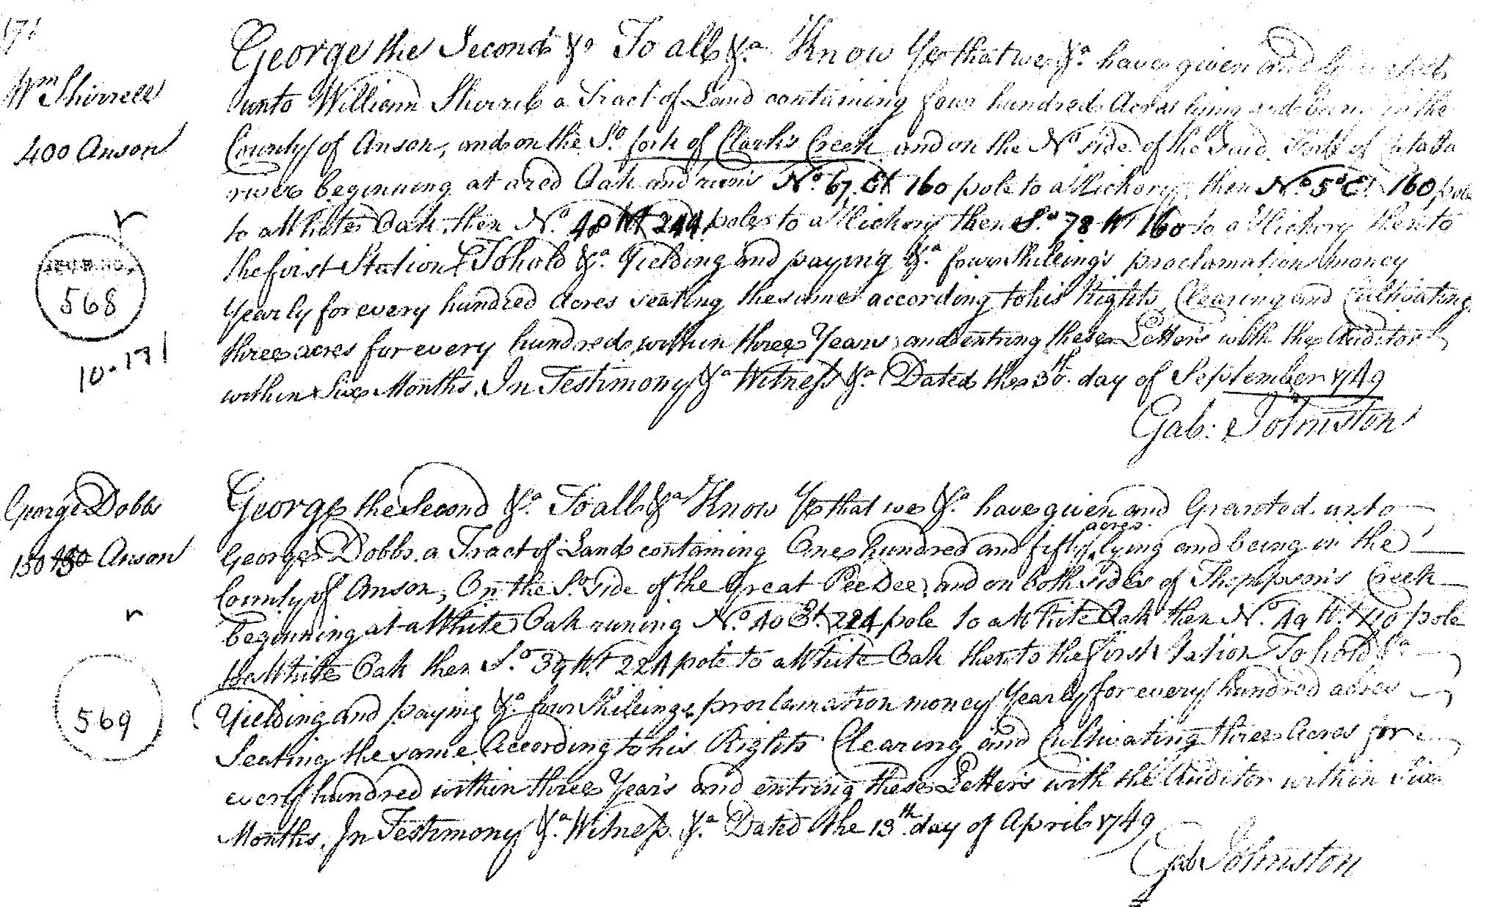 171
Wm Shirrell
400 Anson
568
10-171
George the Second &c To all &a Know Ye that we &a have given and granted
unto William Sherrel a Tract of Land containing four hundred Acres lying and being in the
County of Anson, and on the So fork of Clark's Creek and on the No side of the Said Fork of Cataba
river beginning at a red Oak and runs No 67 Et 160 pole to a Hickory then No 5o Et 160 pole
to a White Oak then No 48 Wt 244 poles to a Hickory then So 78 Wt 160 to a Hickory then to
the first Station To hold &a Yielding and paying &a four Shillings proclamation money
Yearly for every hundred acres seating the same according to his Rights Clearing and Cultivating
three acres for every hundred within three Years and entring these Letters with the Auditor
within Six Months. In Testimony &a Witness &a Dated the 30th day of September 1749
Gab: Johnston
George Dobbs
150 Anson
569
George the Second &a To all &a Know Ye that we &a have given and Granted unto
George Dobbs a Tract of Land containing One hundred and fifty acres lying and being in the
County of Anson, On the So Side of the Great PeeDee, and on both sides of Thompson's Creek
beginning at a White Oak runing No 40 Et 224 pole to a White Oak then No 49 Wt 110 pole
to a White Oak then So 39 Wt 224 pole to a White Oak then to the First Station To hold &a
Yielding and paying &a four Shillings proclamation money Yearly for every hundred acres
Seating the same According to his Rights Clearing and Cultivating three Acres for
every hundred within three Year's and entring these Letters with the Auditor within Six
Months. In Testimony &a Witness &a Dated the 13th day of April 1749
Gab Johnston